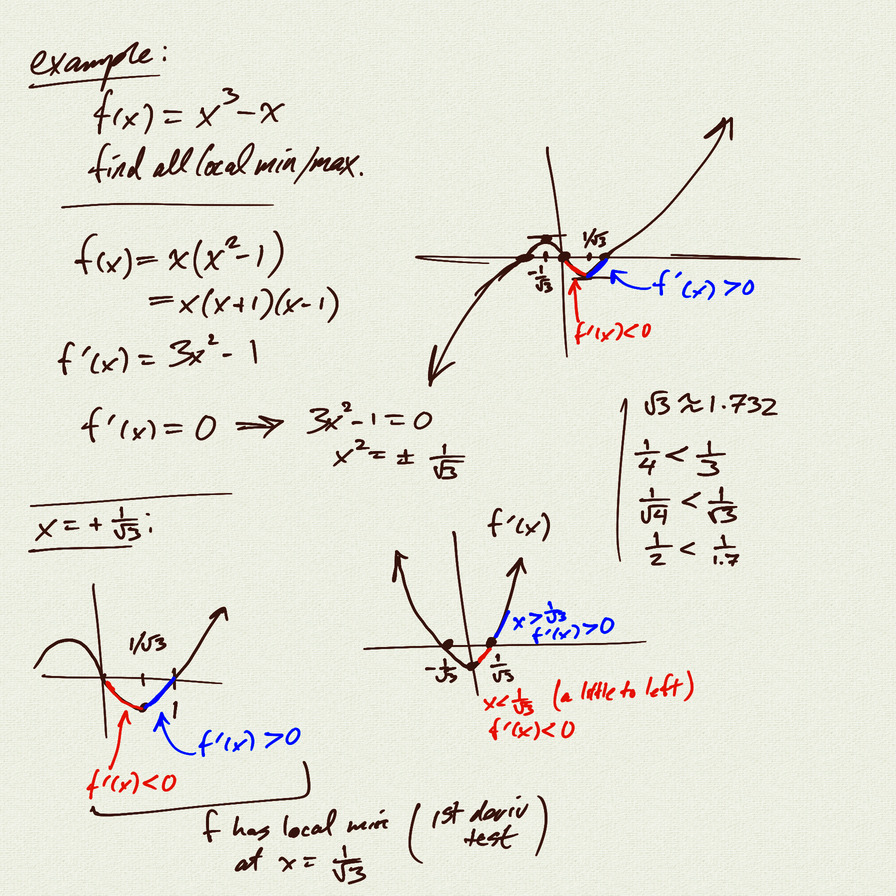 example:
f(x) = x³ - x
find all local min/max.
f(x) = x(x² - 1)
= x(x+1)(x-1)
f'(x) = 3x² - 1
f'(x) = 0 ⟹ 3x² - 1 = 0
x² = ± 1/√3
1/√3
-1/√3
f'(x) > 0
f'(x) < 0
√3 ≈ 1.732
1/4 < 1/3
1/√4 < 1/√3
1/2 < 1/1.7
x = + 1/√3 :
1/√3
1
f'(x) > 0
f'(x) < 0
f'(x)
x > 1/√3
f'(x) > 0
-1/√3
1/√3
x < 1/√3 (a little to left)
f'(x) < 0
f has local min (1st deriv
at x = 1/√3 test)